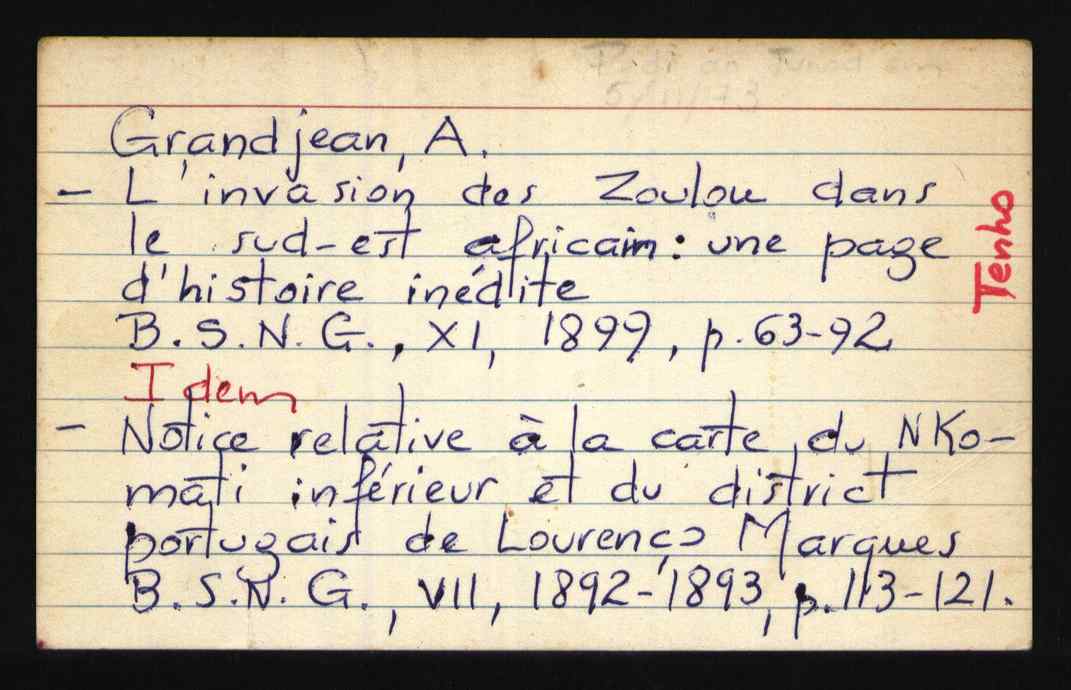 5/11/73
Grandjean, A.
- L'invasion des Zoulou dans
le sud-est africain: une page
d'histoire inédite
B.S.N.G., XI, 1899, p. 63-92
Tenho
Idem
- Notice relative à la carte du NKo-
mati inférieur et du district
portugais de Lourenço Marques
B.S.N.G., VII, 1892-1893, p. 113-121.